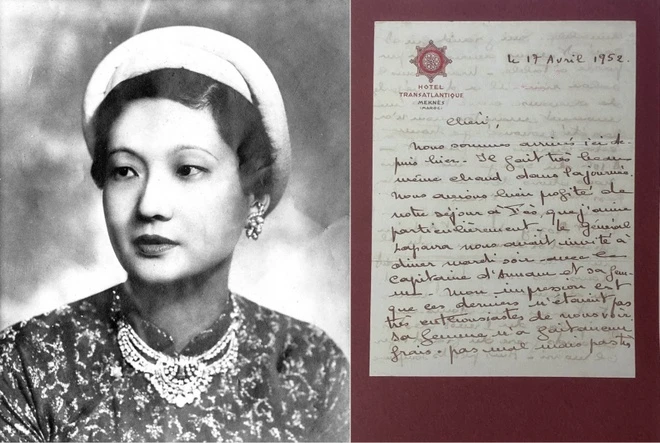 HOTEL
TRANSATLANTIQUE
MEKNÈS
(MAROC)
le 17 Avril 1952.
Chéri,
Nous sommes arrivés ici de-
puis hier. Il fait très beau
même chaud dans la journée.
Nous avions bien profité de
notre séjour à Fès, que j'aime
particulièrement. Le Général
Laparra nous avait invité à
dîner mardi soir avec le
capitaine d'Annam et sa fem-
me. Mon impression est
que ces derniers n'étaient pas
très enthousiastes de nous voir.
Sa femme m'a
frais. pas mal mais pas très